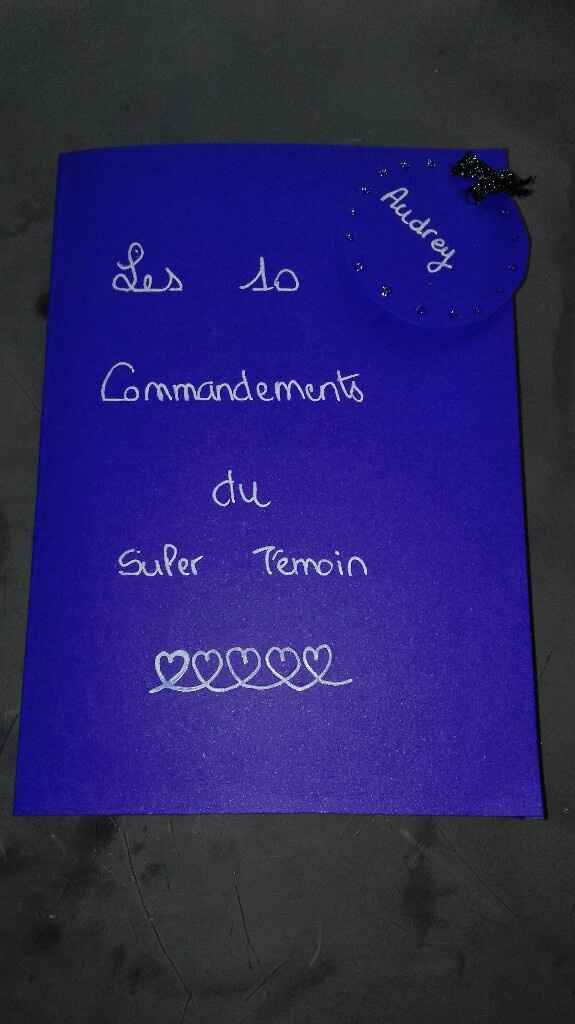 Audrey
Les 10
Commandements
du
Super Témoin